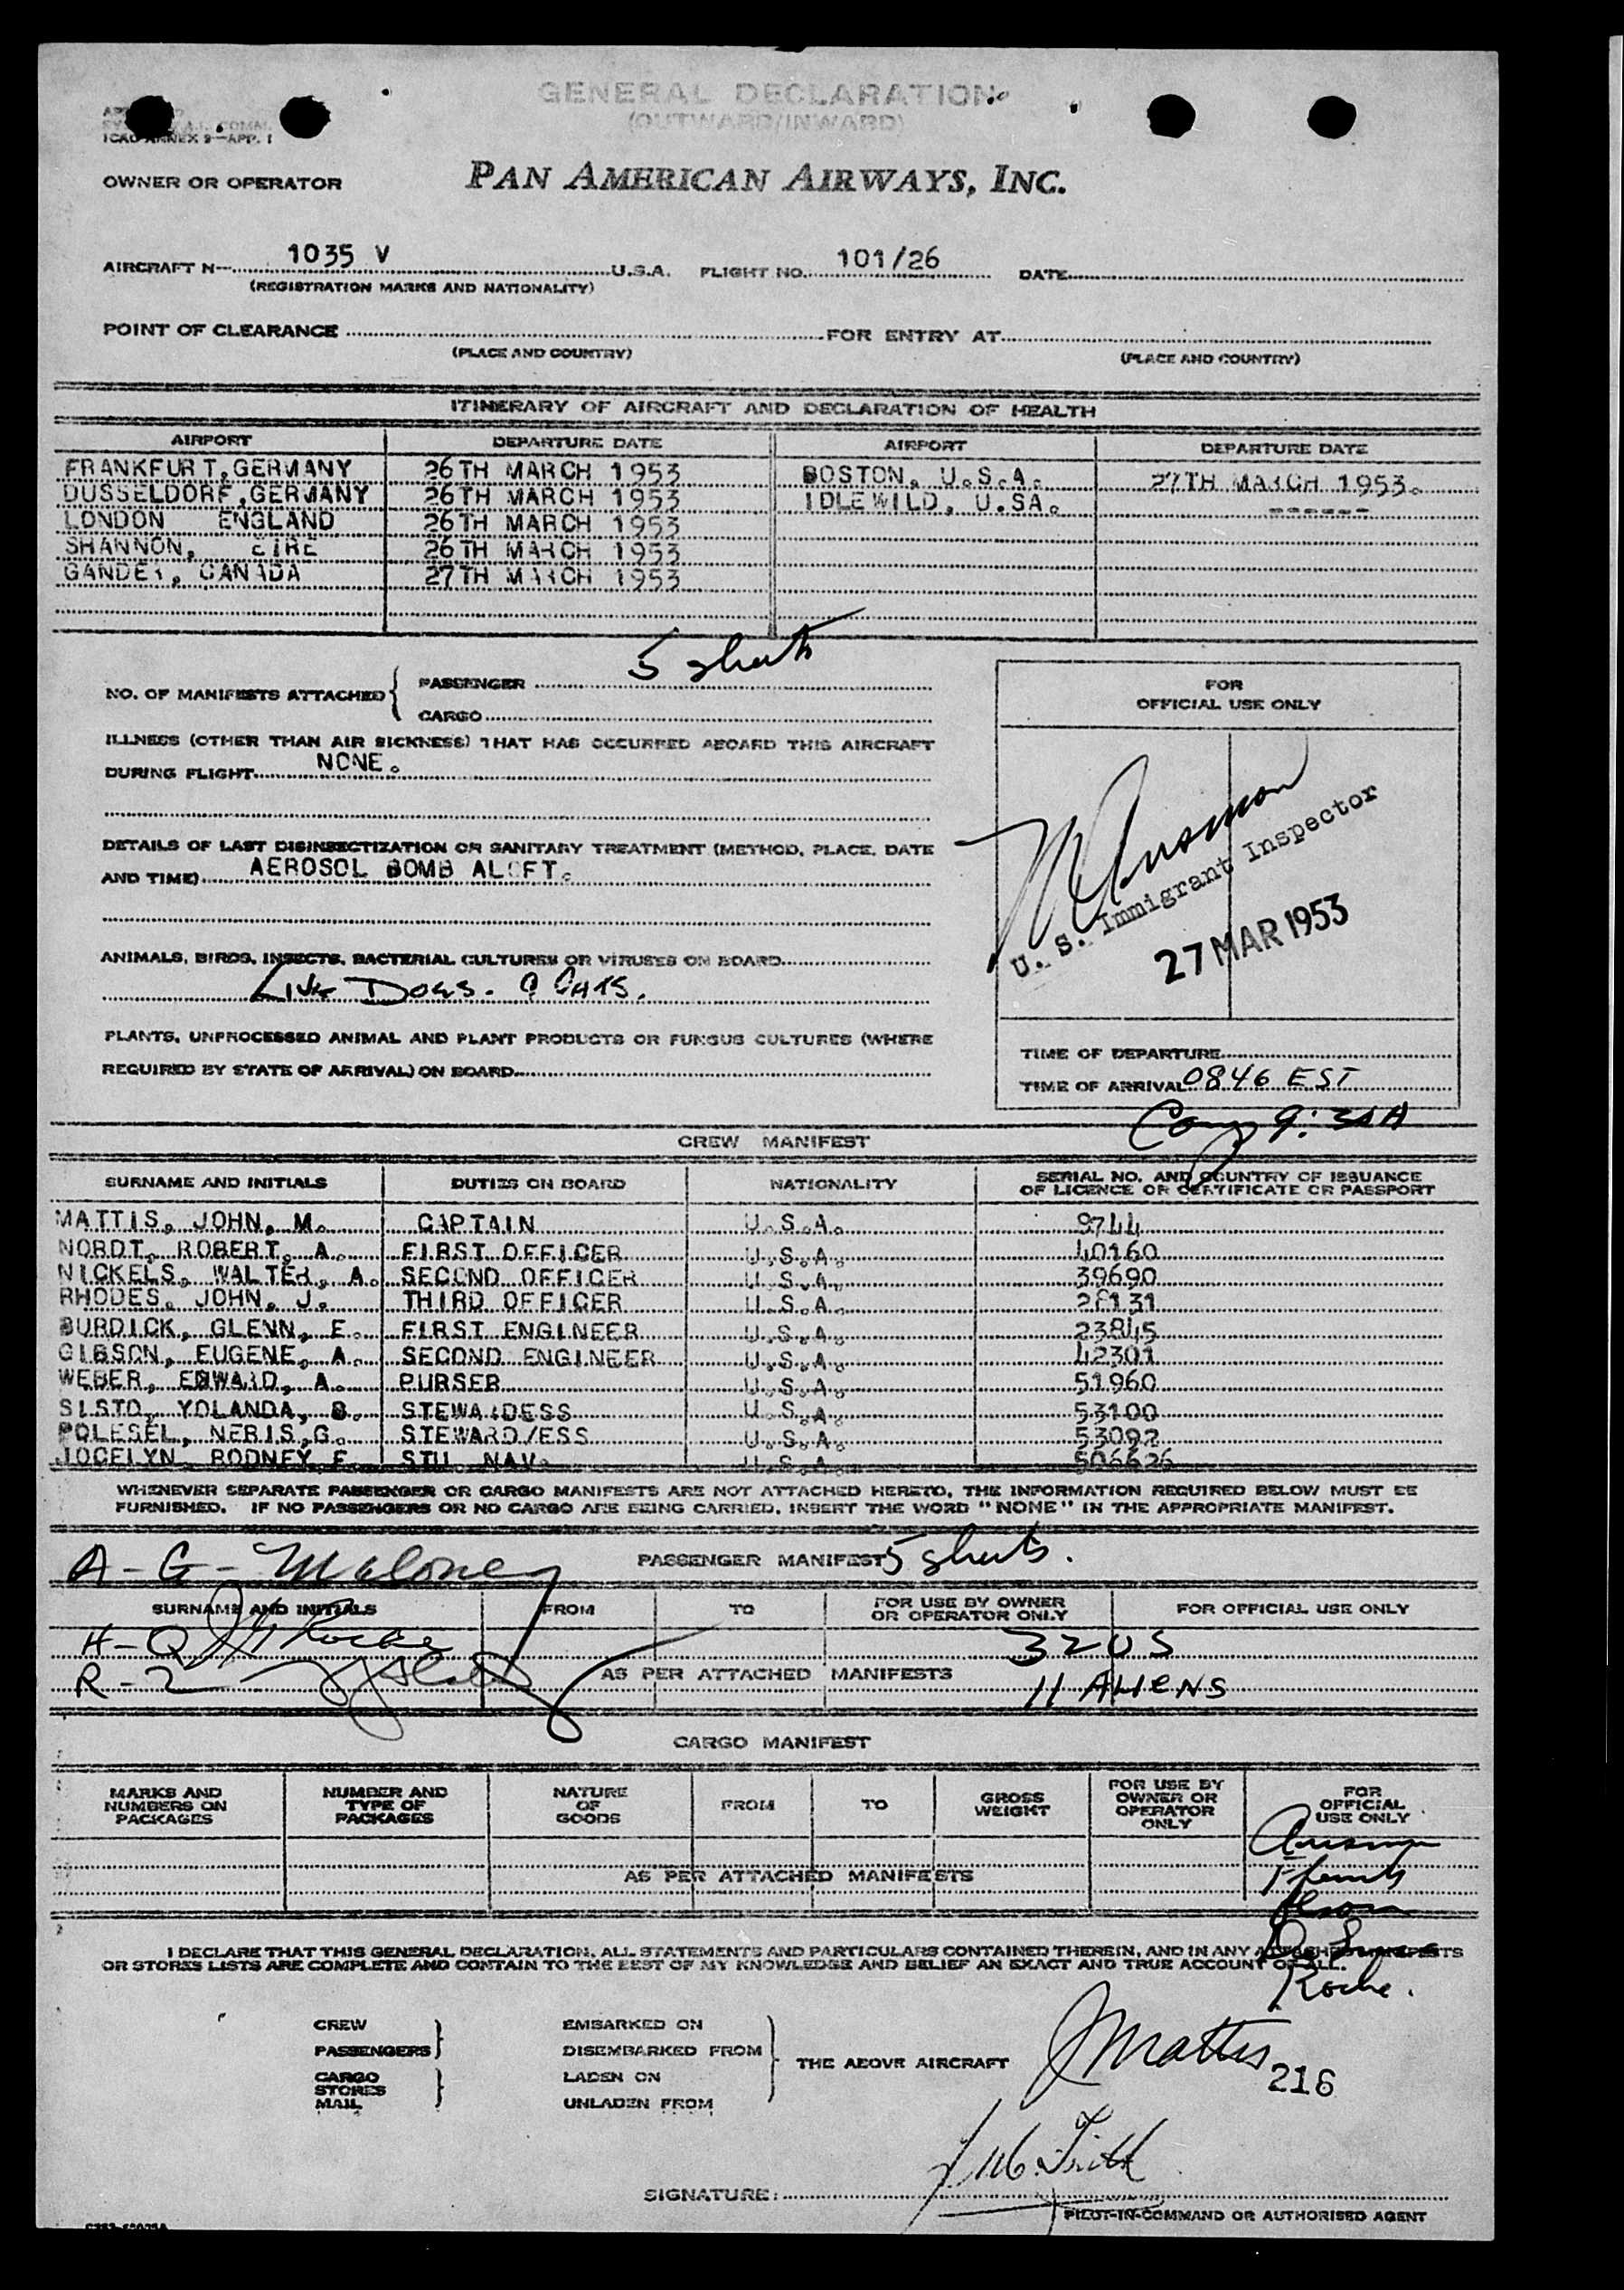 GENERAL DECLARATION
(OUTWARD/INWARD)
ICAO ANNEX 9—APP. 1
OWNER OR OPERATOR PAN AMERICAN AIRWAYS, INC.
AIRCRAFT N— 1035 V U.S.A. FLIGHT NO. 101/26 DATE
(REGISTRATION MARKS AND NATIONALITY)
POINT OF CLEARANCE FOR ENTRY AT
(PLACE AND COUNTRY) (PLACE AND COUNTRY)
ITINERARY OF AIRCRAFT AND DECLARATION OF HEALTH
AIRPORT DEPARTURE DATE AIRPORT DEPARTURE DATE
FRANKFURT, GERMANY 26TH MARCH 1953 BOSTON, U.S.A. 27TH MARCH 1953.
DUSSELDORF, GERMANY 26TH MARCH 1953 IDLEWILD, U.SA. ------
LONDON ENGLAND 26TH MARCH 1953
SHANNON, EIRE 26TH MARCH 1953
GANDER, CANADA 27TH MARCH 1953
NO. OF MANIFESTS ATTACHED { PASSENGER 5 sheets
CARGO
FOR
OFFICIAL USE ONLY
ILLNESS (OTHER THAN AIR SICKNESS) THAT HAS OCCURRED ABOARD THIS AIRCRAFT
DURING FLIGHT NONE.
DETAILS OF LAST DISINSECTIZATION OR SANITARY TREATMENT (METHOD, PLACE, DATE
AND TIME) AEROSOL BOMB ALOFT.
U. S. Immigrant Inspector
27 MAR 1953
ANIMALS, BIRDS, INSECTS, BACTERIAL CULTURES OR VIRUSES ON BOARD
Live Dogs. Cats.
PLANTS, UNPROCESSED ANIMAL AND PLANT PRODUCTS OR FUNGUS CULTURES (WHERE
REQUIRED BY STATE OF ARRIVAL) ON BOARD
TIME OF DEPARTURE
TIME OF ARRIVAL 0846 EST
9:30A
CREW MANIFEST
SURNAME AND INITIALS DUTIES ON BOARD NATIONALITY SERIAL NO. AND COUNTRY OF ISSUANCE
OF LICENCE OR CERTIFICATE OR PASSPORT
MATTIS, JOHN, M. CAPTAIN U.S.A. 9744
NORDT, ROBERT, A. FIRST OFFICER U.S.A. 40160
NICKELS, WALTER, A. SECOND OFFICER U.S.A. 39690
RHODES, JOHN, J. THIRD OFFICER U.S.A. 28131
BURDICK, GLENN, E. FIRST ENGINEER U.S.A. 23845
GIBSON, EUGENE, A. SECOND ENGINEER U.S.A. 42301
WEBER, EDWARD, A. PURSER U.S.A. 51960
SISTO, YOLANDA, B. STEWARDESS U.S.A. 53100
POLESEL, NERIS,G. STEWARD/ESS U.S.A. 53092
JOCELYN RODNEY F. STU NAV. U.S.A. 506626
WHENEVER SEPARATE PASSENGER OR CARGO MANIFESTS ARE NOT ATTACHED HERETO, THE INFORMATION REQUIRED BELOW MUST BE
FURNISHED. IF NO PASSENGERS OR NO CARGO ARE BEING CARRIED, INSERT THE WORD "NONE" IN THE APPROPRIATE MANIFEST.
A - G - Maloney PASSENGER MANIFEST 5 sheets.
SURNAME AND INITIALS FROM TO FOR USE BY OWNER
OR OPERATOR ONLY FOR OFFICIAL USE ONLY
H - Q Rocke 32 US
R - Z AS PER ATTACHED MANIFESTS 11 ALIENS
CARGO MANIFEST
MARKS AND
NUMBERS ON
PACKAGES
NUMBER AND
TYPE OF
PACKAGES
NATURE
OF
GOODS
FROM
TO
GROSS
WEIGHT
FOR USE BY
OWNER OR
OPERATOR
ONLY
FOR
OFFICIAL
USE ONLY
AS PER ATTACHED MANIFESTS
I DECLARE THAT THIS GENERAL DECLARATION, ALL STATEMENTS AND PARTICULARS CONTAINED THEREIN, AND IN ANY ATTACHED MANIFESTS
OR STORES LISTS ARE COMPLETE AND CONTAIN TO THE BEST OF MY KNOWLEDGE AND BELIEF AN EXACT AND TRUE ACCOUNT OF ALL.
Roche.
CREW EMBARKED ON
PASSENGERS } DISEMBARKED FROM } THE ABOVE AIRCRAFT J Mattis
CARGO LADEN ON 216
STORES }
MAIL UNLADEN FROM
SIGNATURE:
PILOT-IN-COMMAND OR AUTHORISED AGENT